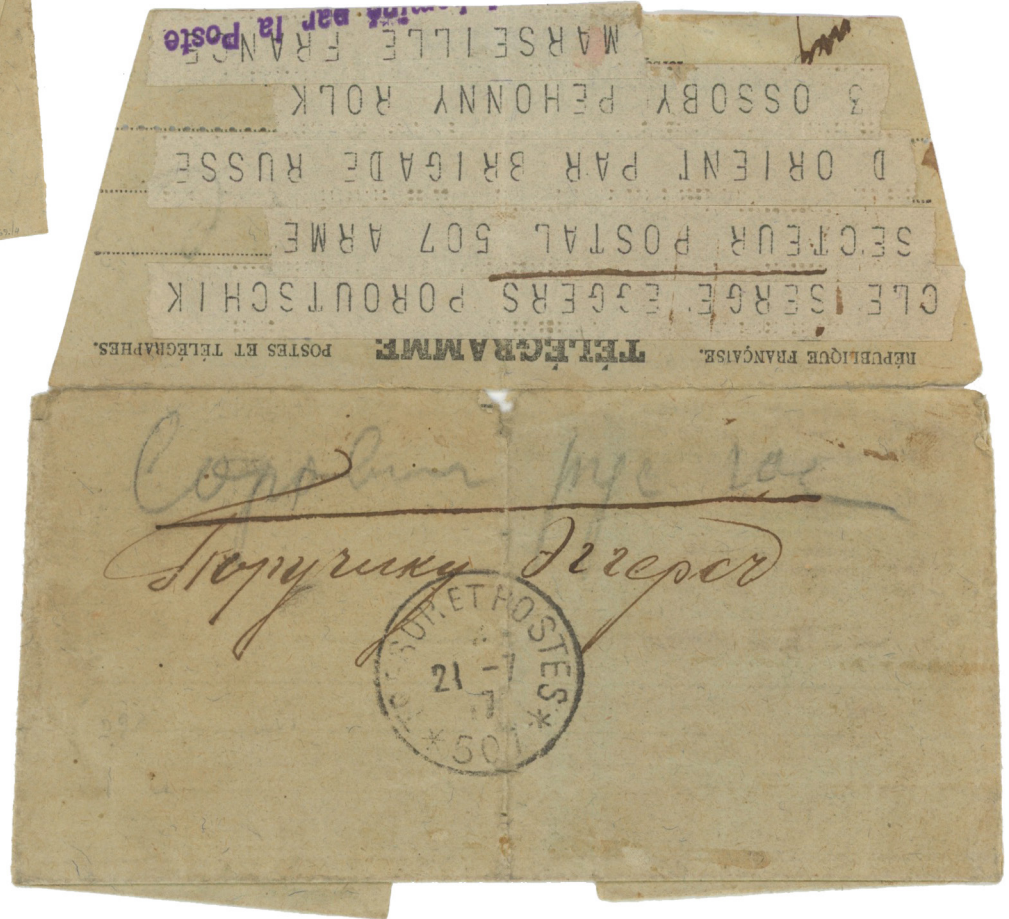 RÉPUBLIQUE FRANÇAISE. TÉLÉGRAMME POSTES ET TÉLÉGRAPHES.
CLE SERGE EGGERS POROUTSCHIK
SECTEUR POSTAL 507 ARME
D ORIENT PAR BRIGADE RUSSE
3 OSSOBY PEHONNY ROLK
MARSEILLE FRANCE
par la Poste
Поручику Эггерсъ
ET POSTES
21 - 7
* 501 *